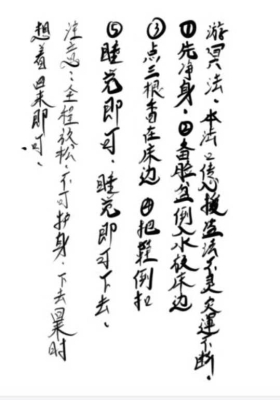 游冥法，本法口传援盗法不灵灾运不断，
①先净身，②备脸盆倒入水放床边
③点三根香在床边 ④把鞋倒扣
⑤睡觉即可，睡觉即可下去。
注意：全程放松，不可护身，下去累时
想着回来即可。